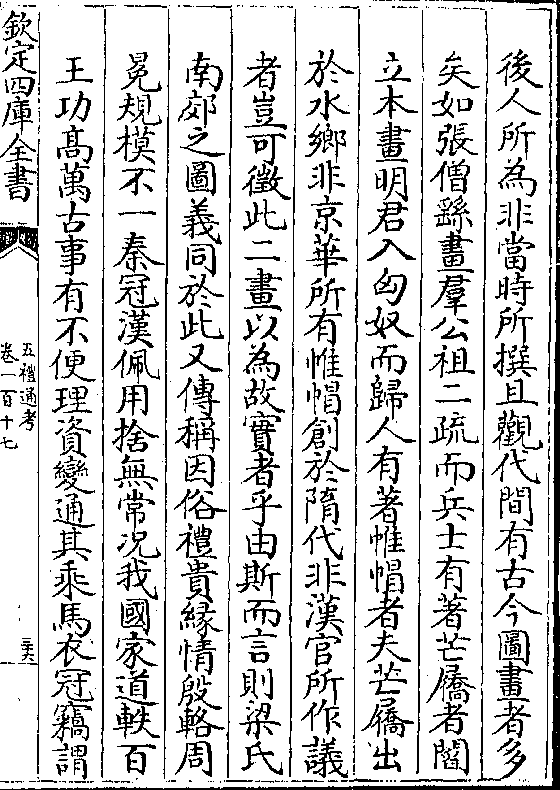 後人所為非當時所撰且觀代間有古今圖畫者多
矣如張僧繇畫羣公祖二疏而兵士有著芒屩者閻
立本畫明君入匈奴而歸人有著帷帽者夫芒屩出
於水鄉非京華所有帷帽創於隋代非漢官所作議
者豈可徵此二畫以為故實者乎由斯而言則梁氏
南郊之圖義同於此又傳稱因俗禮貴緣情殷輅周
冕規模不一秦冠漢佩用捨無常況我國家道軼百
王功髙萬古事有不便理資變通其乘馬衣冠竊謂
欽定四庫全書
五禮通考
卷一百十七
三六